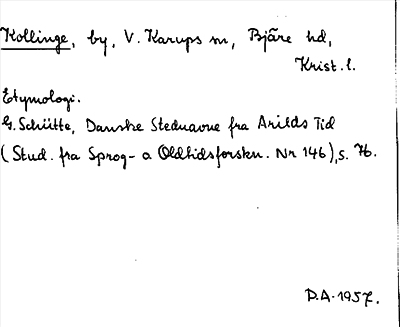 Kollinge, by, V. Karups sn, Bjäre hd,
Krist. l.
Etymologi.
G. Schütte, Danske Stednavne fra Arilds Tid
(Stud. fra Sprog- o Oldtidsforskn. Nr 146), s. 76.
D.A. 1957.